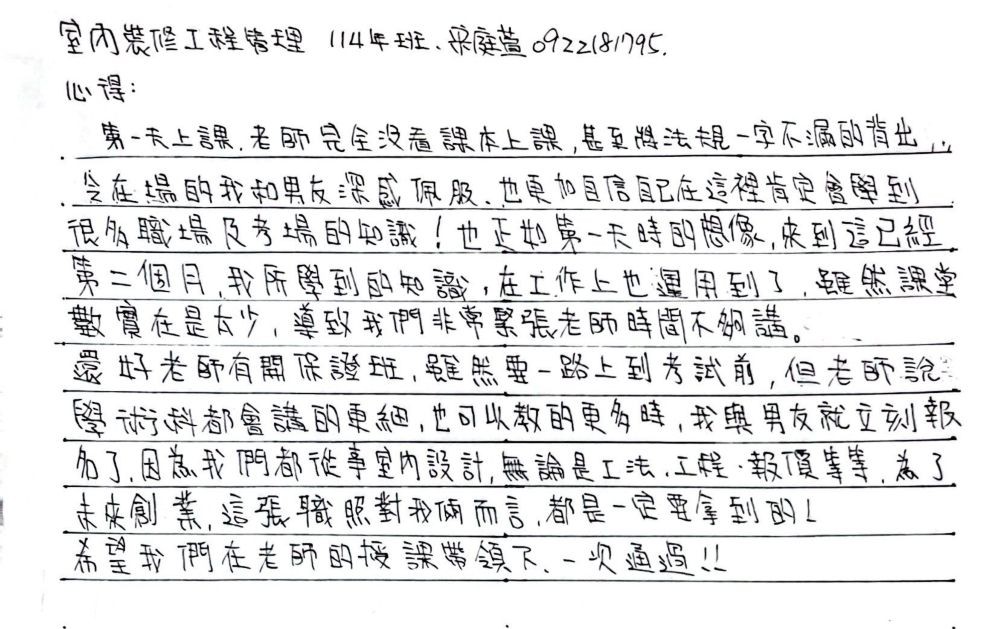 室內裝修工程管理 114年班、宋庭萱 0922181795.
心得:
第一天上課,老師完全沒看課本上課,甚至將法規一字不漏的背出,..
令在場的我和男友深感佩服、也更加自信自己在這裡肯定會學到
很多職場及考場的知識!也正如第一天時的想像,來到這已經
第二個月,我所學到的知識,在工作上也運用到了,雖然課堂
數實在是太少,導致我們非常緊張老師時間不夠講。
還好老師有開保證班,雖然要一路上到考試前,但老師說
學術科都會講的更細,也可以教的更多時,我與男友就立刻報
名了,因為我們都從事室內設計,無論是工法、工程、報價等等,為了
未來創業,這張職照對我倆而言,都是一定要拿到的!
希望我們在老師的授課帶領下、一次通過!!